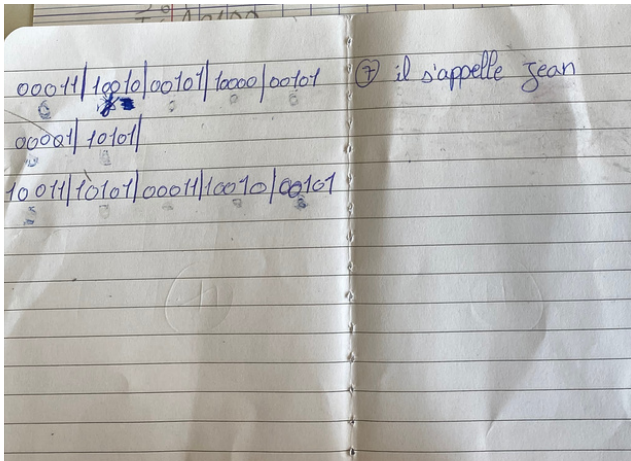 00011|10010|00101|10000|00101
00001|10101|
10011|10101|00011|10010|00101
⑦ il s'appelle Jean